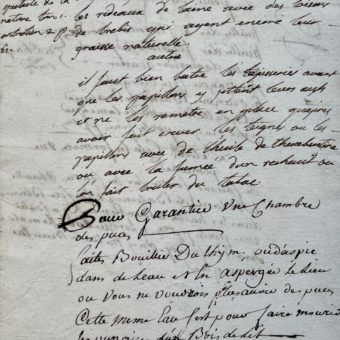 les rideaux de laine avec des toisons
de brebis qui ayent encore leur
graisse naturelle
autre
il faut bien batre les tapisseries avant
que les papillons y jettent leurs œufs
et ne les remetre en place qu'apres
avoir fait crever les teignes ou les
papillons avec de l'huile de therebentine
ou avec la fumée d'un rechaut ou
lon fait bruler du tabac
Pour Garantir Une Chambre
des puces
faites Bouillir Du thym, ou d'aspic
dans de l'eau et en aspergés le lieu
ou Vous ne voudrois plus avoir de puces
Cette même Eau sert pour faire mourir
les punaises d'un Bois de lit